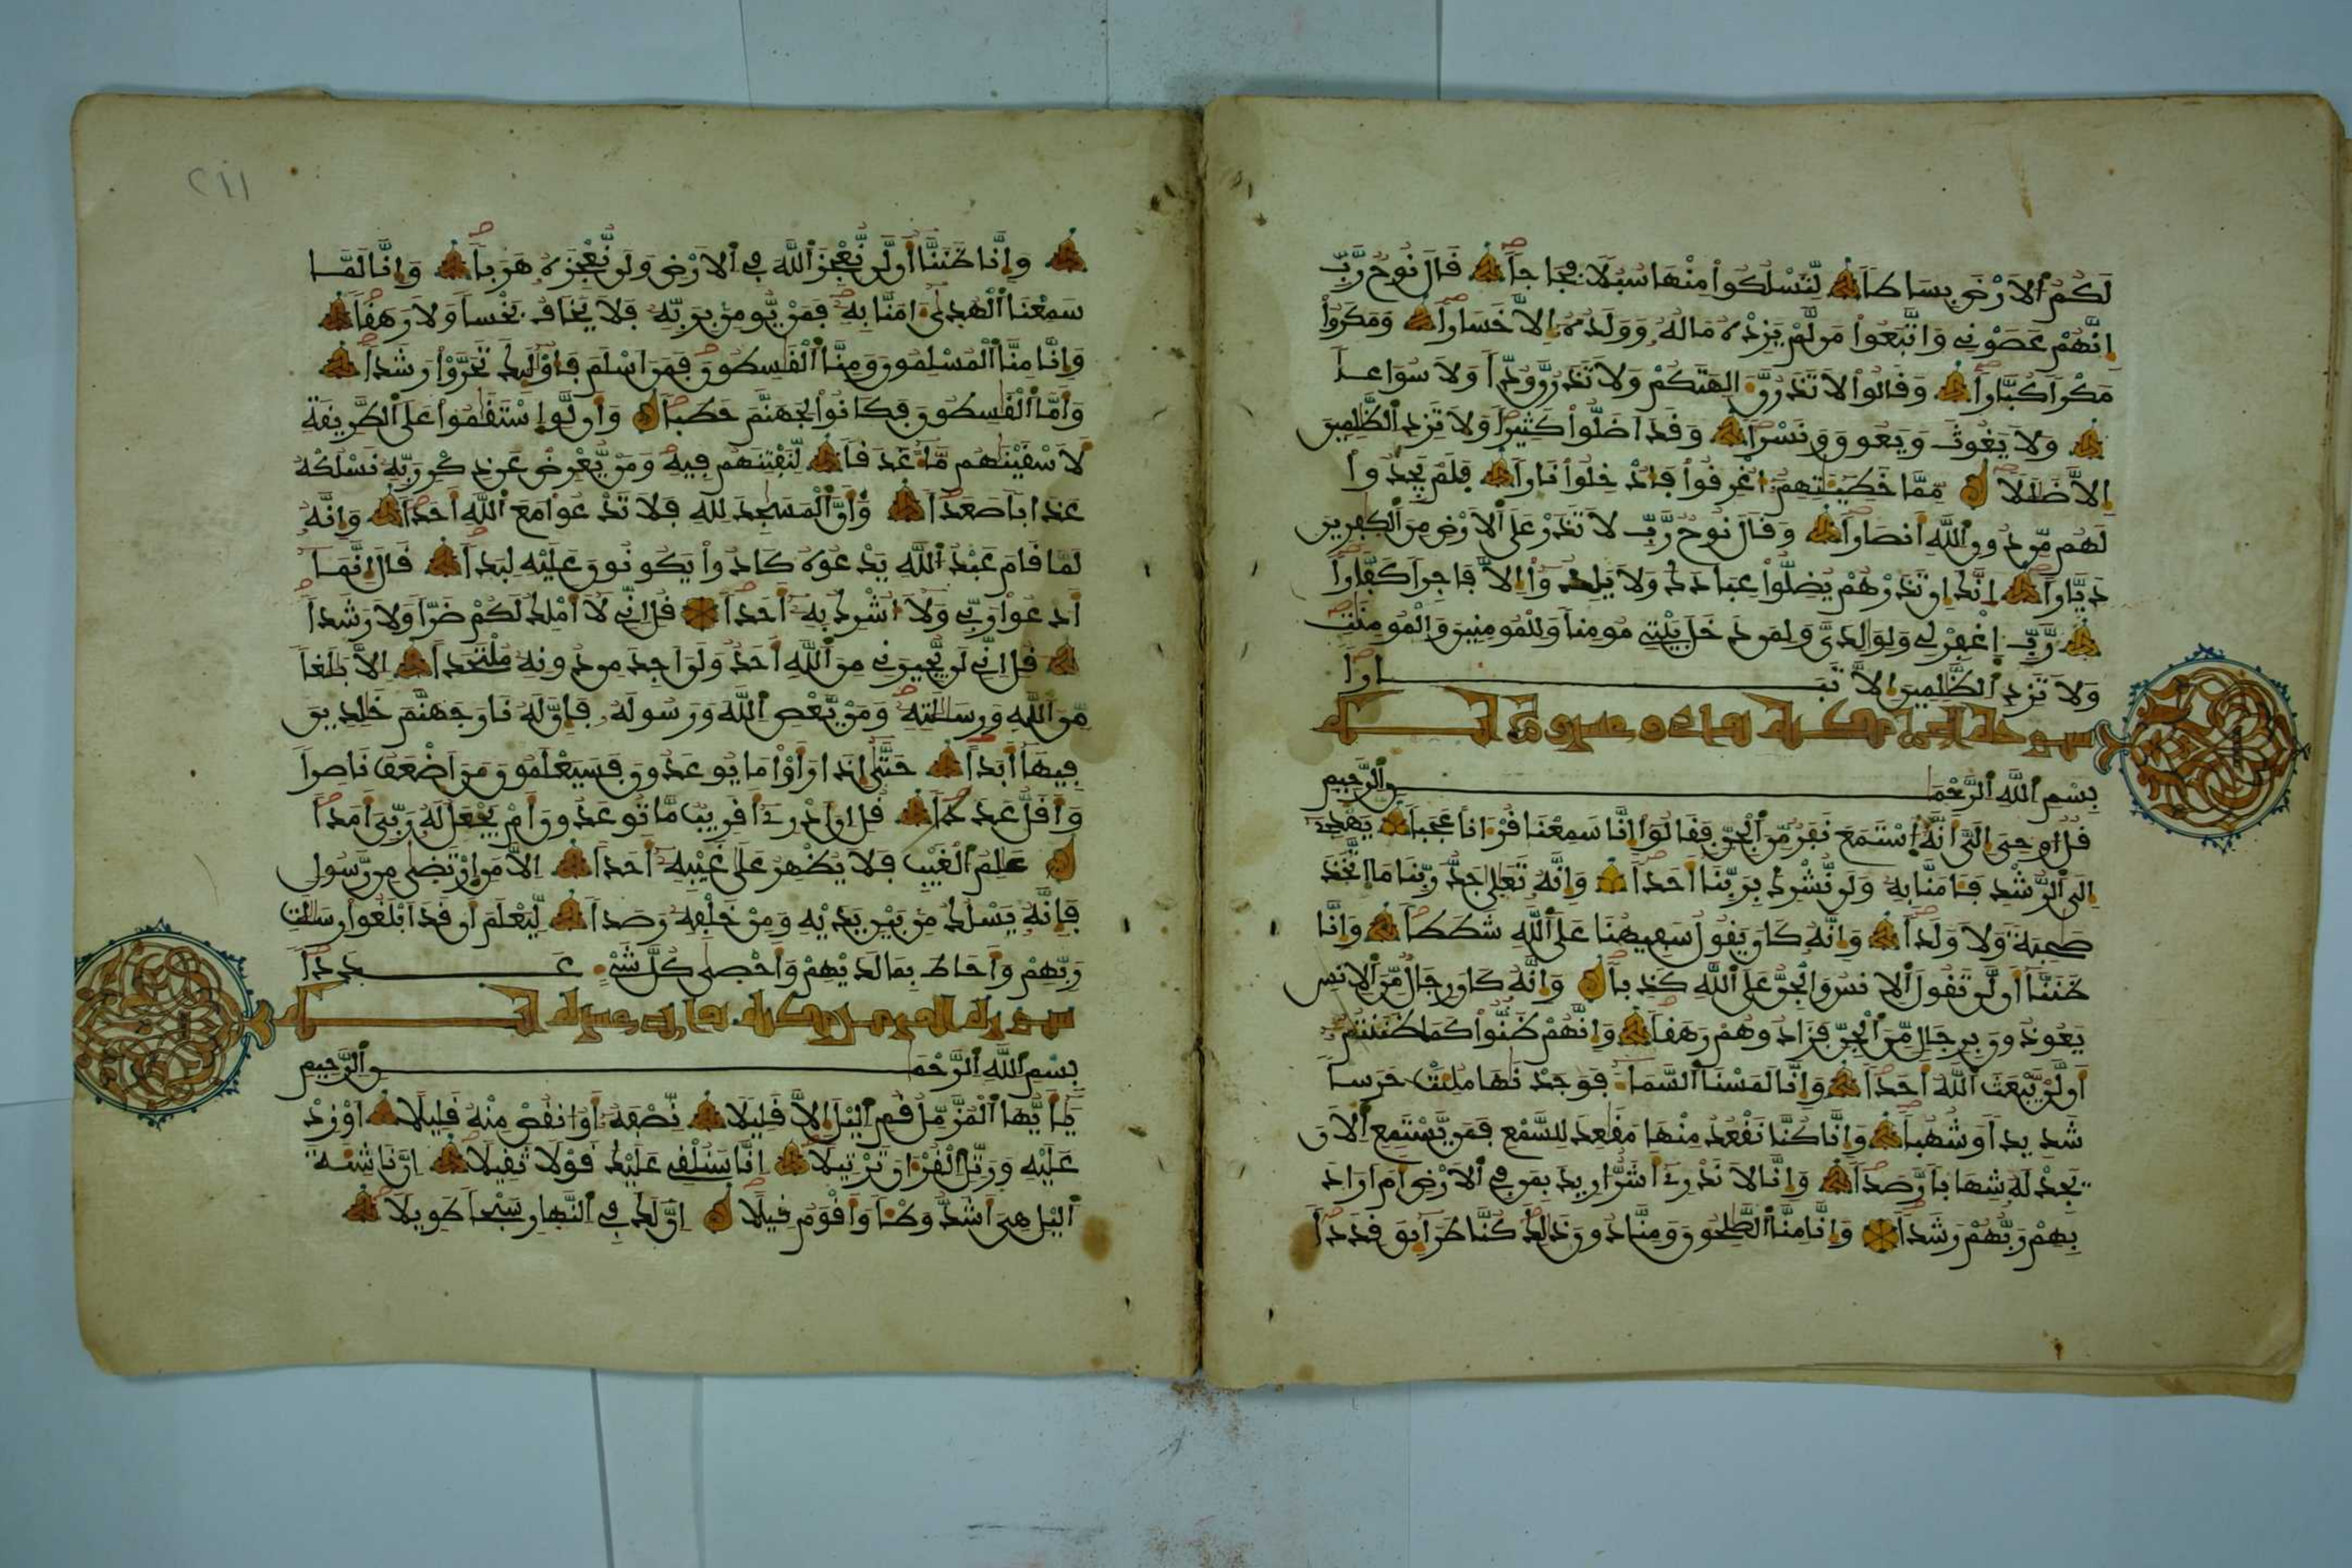 لكم الارض بساطا لتسلكوا منها سبلا فجاجا قال نوح رب
انهم عصوني واتبعوا من لم يزده ماله وولده إلا خسارا ومكروا
مكرا كبارا وقالوا لا تذرن الهتكم ولا تذرن ودا ولا سواعا
ولا يغوث ويعوق ونسرا وقد اضلوا كثيرا ولا تزد الظلمين
الا ضللا مما خطيئتهم اغرقوا فادخلوا نارا فلم يجدوا
لهم من دون الله انصارا وقال نوح رب لا تذر على الارض من الكفرين
ديارا انك ان تذرهم يضلوا عبادك ولا يلدوا الا فاجرا كفارا
رب اغفر لي ولوالدي ولمن دخل بيتي مومنا وللمومنين والمومنت
ولا تزد الظلمين الا تبارا
سورة الجن مكية ثمان وعشرون آية
بسم الله الرحمن الرحيم
قل اوحي الي انه استمع نفر من الجن فقالوا انا سمعنا قرءانا عجبا يهدي
الى الرشد فـامنا به ولن نشرك بربنا احدا وانه تعلى جد ربنا ما اتخذ
صحبة ولا ولدا وانه كان يقول سفيهنا على الله شططا وانا
ظننا أن لن تقول الانس والجن على الله كذبا وانه كان رجال من الانس
يعوذون برجال من الجن فزادوهم رهقا وانهم ظنوا كما ظننتم
أن لن يبعث الله احدا وانا لمسنا السماء فوجدنها ملئت حرسا
شديدا وشهبا وانا كنا نقعد منها مقعد للسمع فمن يستمع الان
يجد له شهابا رصدا وانا لا ندري أشر اريد بمن في الارض ام اراد
بهم ربهم رشدا وانا منا الصلحون ومنا دون ذلك كنا طرائق قددا
٢١١
وانا ظننا أن لن نعجز الله في الارض ولن نعجزه هربا وانا لما
سمعنا الهدى ءامنا به فمن يومن بربه فلا يخاف بخسا ولا رهقا
وانا منا المسلمون ومنا القسطون فمن اسلم فاولئك تحروا رشدا
واما القسطون فكانوا لجهنم حطبا وأن لو استقموا على الطريقة
لاسقينهم ماء غدقا لنفتنهم فيه ومن يعرض عن ذكر ربه نسلكه
عذابا صعدا وأن المسجد لله فلا تدعوا مع الله احدا وانه
لما قام عبد الله يدعوه كادوا يكونون عليه لبدا قال انما
ادعوا ربي ولا اشرك به أحدا قل اني لا املك لكم ضرا ولا رشدا
قل اني لن يجيرني من الله احد ولن اجد من دونه ملتحدا الا بلغا
من الله ورسالته ومن يعص الله ورسوله فإن له نار جهنم خلدين
فيها أبدا حتى إذا رأوا ما يوعدون فسيعلمون من اضعف ناصرا
وأقل عددا قل ان ادري أقريب ما توعدون أم يجعل له ربي أمدا
علم الغيب فلا يظهر على غيبه أحدا الا من ارتضى من رسول
فإنه يسلك من بين يديه ومن خلفه رصدا ليعلم أن قد ابلغوا رسلت
ربهم وأحاط بما لديهم وأحصى كل شيء عددا
سورة المزمل مكية ثماني عشرة آية
بسم الله الرحمن الرحيم
يأيها المزمل قم اليل الا قليلا نصفه أو انقص منه قليلا او زد
عليه ورتل القرءان ترتيلا انا سنلقي عليك قولا ثقيلا ان ناشئة
اليل هي أشد وطئا وأقوم قيلا ان لك في النهار سبحا طويلا